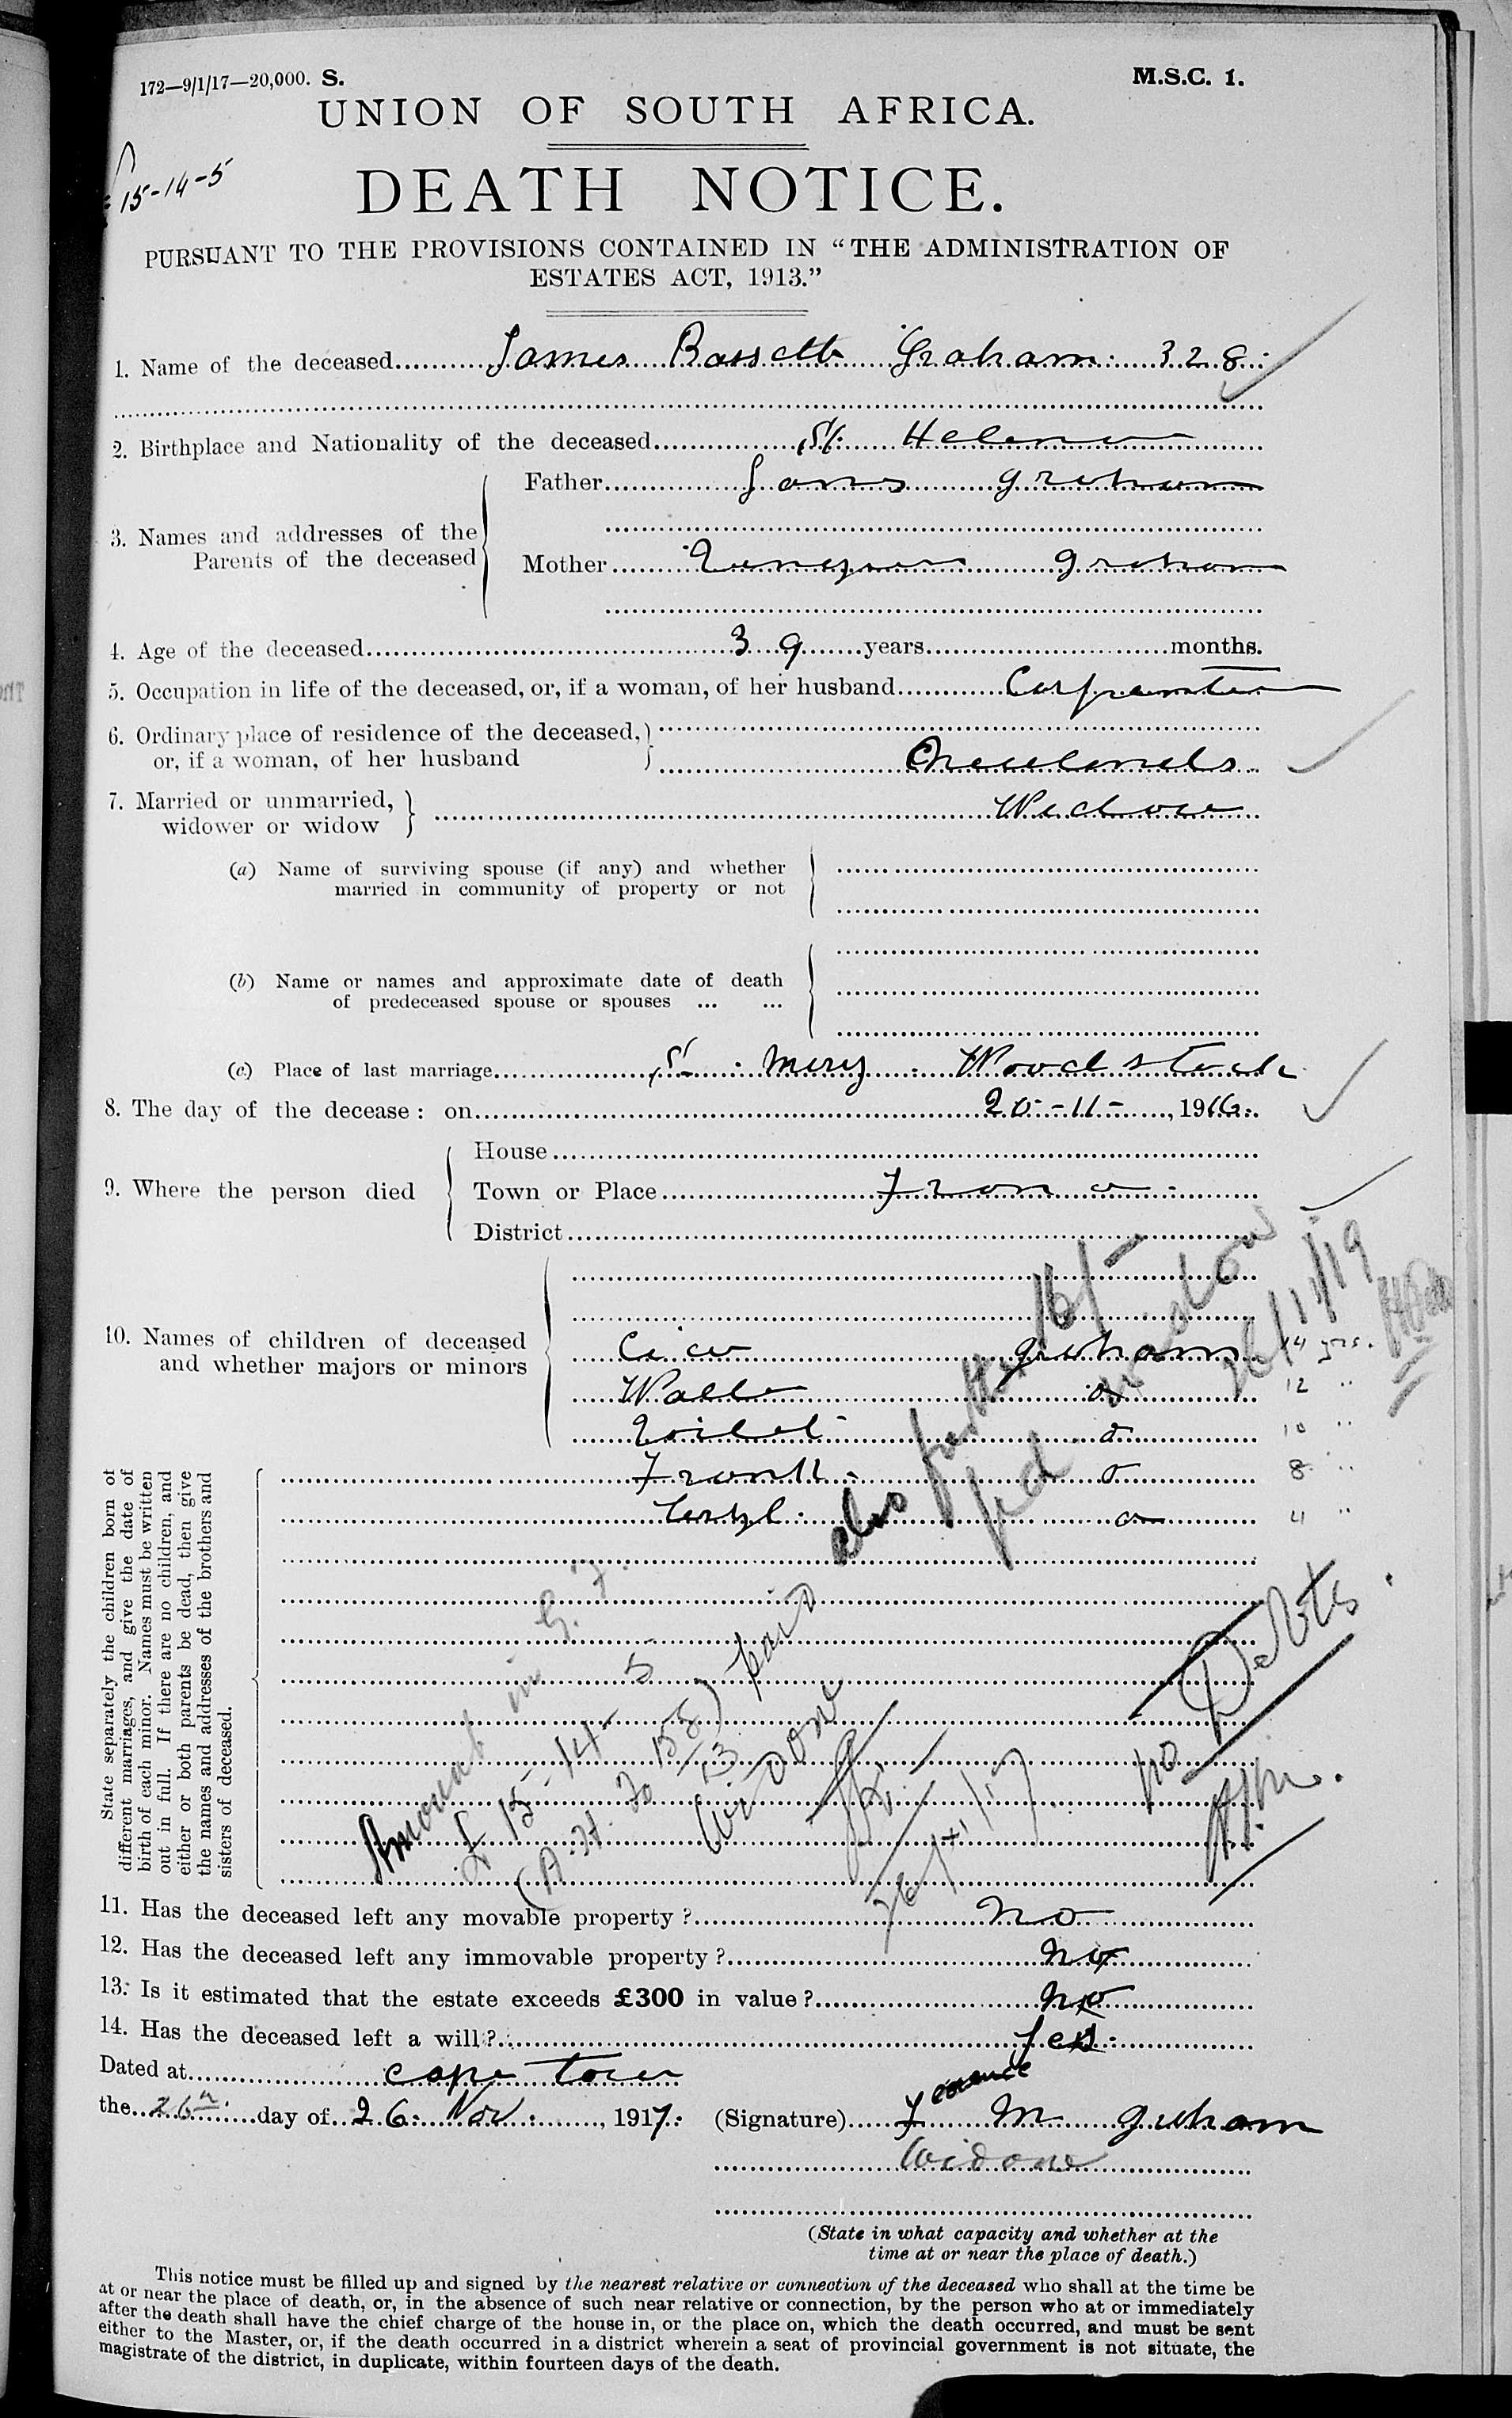 172—9/1/17—20,000. S.
M.S.C. 1.
UNION OF SOUTH AFRICA.
15-14-5
DEATH NOTICE.
PURSUANT TO THE PROVISIONS CONTAINED IN “THE ADMINISTRATION OF
ESTATES ACT, 1913.”
1. Name of the deceased James Bassett Graham. 328.
2. Birthplace and Nationality of the deceased St. Helena
3. Names and addresses of the Parents of the deceased
Father James Graham
Mother Graham
4. Age of the deceased 39 years months.
5. Occupation in life of the deceased, or, if a woman, of her husband Carpenter
6. Ordinary place of residence of the deceased,
or, if a woman, of her husband
7. Married or unmarried,
widower or widow Widow
(a) Name of surviving spouse (if any) and whether
married in community of property or not
(b) Name or names and approximate date of death
of predeceased spouse or spouses ... ...
(c) Place of last marriage St. Mary. Woodstock
8. The day of the decease: on 20-11-, 1916.
9. Where the person died
House
Town or Place
District
10. Names of children of deceased
and whether majors or minors
Graham 14 yrs.
12 "
10 "
Frank 8 "
4 "
also further 16/-
pd. widow
26/11/19
State separately the children born of
different marriages, and give the date of
birth of each minor. Names must be written
out in full. If there are no children, and
either or both parents be dead, then give
the names and addresses of the brothers and
sisters of deceased.
Amount in G.F.
£15-14-5
paid
Widow
26/XI/17
No Debts.
11. Has the deceased left any movable property? No
12. Has the deceased left any immovable property? No
13. Is it estimated that the estate exceeds £300 in value? No
14. Has the deceased left a will? Yes.
Dated at Cape Town
the 26th day of 26. Nov., 1917.
(Signature) F M Graham
Widow
(State in what capacity and whether at the
time at or near the place of death.)
This notice must be filled up and signed by the nearest relative or connection of the deceased who shall at the time be
at or near the place of death, or, in the absence of such near relative or connection, by the person who at or immediately
after the death shall have the chief charge of the house in, or the place on, which the death occurred, and must be sent
either to the Master, or, if the death occurred in a district wherein a seat of provincial government is not situate, the
magistrate of the district, in duplicate, within fourteen days of the death.